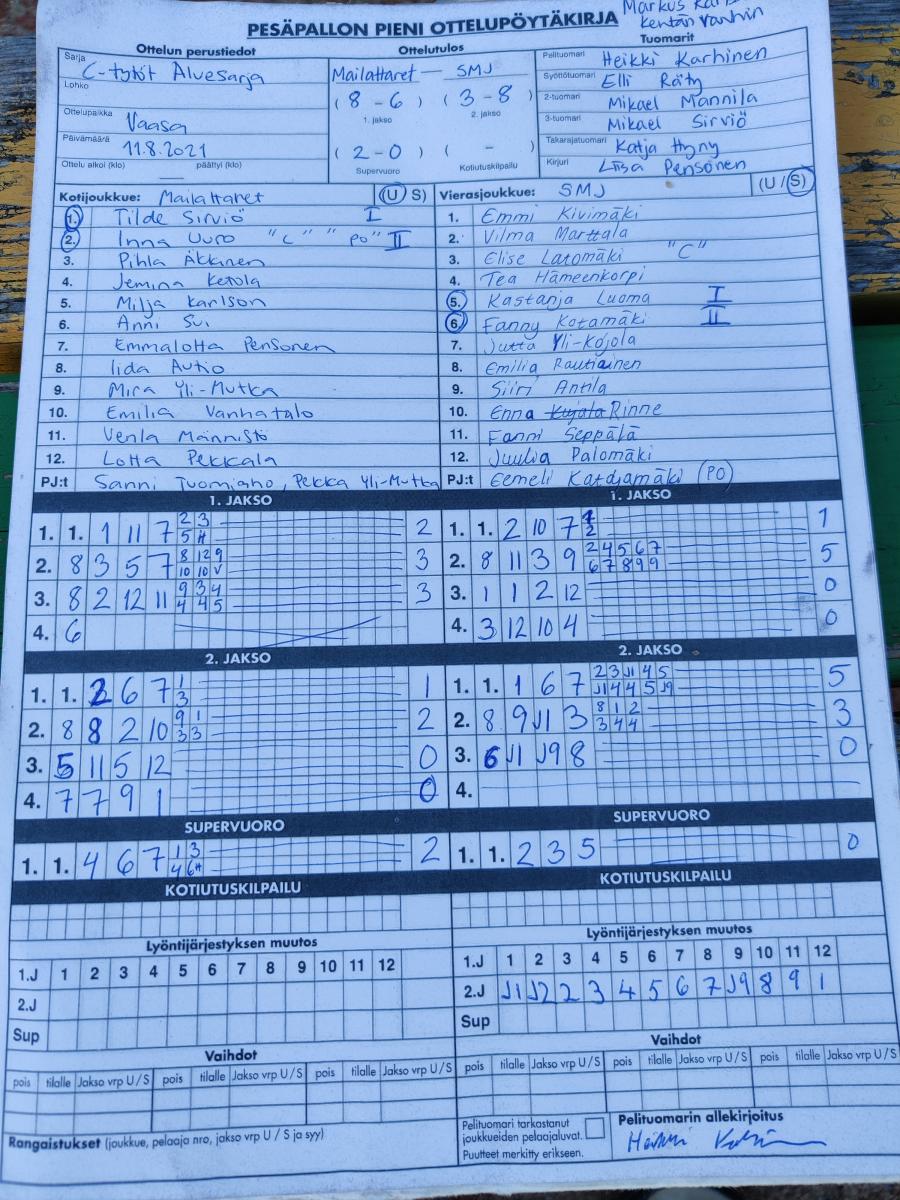 Markus
kentän vanhin
PESÄPALLON PIENI OTTELUPÖYTÄKIRJA
Ottelun perustiedot
Sarja C-tytöt Aluesarja
Lohko
Ottelupaikka Vaasa
Päivämäärä 11.8.2021
Ottelu alkoi (klo) päättyi (klo)
Ottelutulos
Mailattaret — SMJ
( 8 - 6 ) ( 3 - 8 )
1. jakso 2. jakso
( 2 - 0 ) ( - )
Supervuoro Kotiutuskilpailu
Tuomarit
Pelituomari Heikki Karhinen
Syöttötuomari Elli Räty
2-tuomari Mikael Mannila
3-tuomari Mikael Sirviö
Takarajatuomari Katja Hyny
Kirjuri Liisa Pensonen
Kotijoukkue: Mailattaret (U / S)
1. Tilde Sirviö I
2. Inna Uuro "C" "PO" II
3. Pihla Äkkinen
4. Jemina Ketola
5. Milja Karlson
6. Anni Sui
7. Emmalotta Pensonen
8. Iida Autio
9. Mira Yli-Mutka
10. Emilia Vanhatalo
11. Venla Männistö
12. Lotta Pekkala
PJ:t Sanni Tuomiaho, Pekka Yli-Mutka
Vierasjoukkue: SMJ (U / S)
1. Emmi Kivimäki
2. Vilma Marttala
3. Elise Latomäki "C"
4. Tea Hämeenkorpi
5. Kastanja Luoma I
6. Fanny Kotamäki II
7. Jutta Yli-Kojola
8. Emilia Rautiainen
9. Siiri Antila
10. Enna Kujala Rinne
11. Fanni Seppälä
12. Juulia Palomäki
PJ:t Eemeli Kardjamäki (PO)
1. JAKSO
1. 1. 1 11 7 2 3 2
5 H
2. 8 3 5 7 8 12 9 3
10 10 V
3. 8 2 12 11 9 3 4 3
4 4 5
4. 6
1. JAKSO
1. 1. 2 10 7 1 1
2
2. 8 11 3 9 2 4 5 6 7 5
6 7 8 9 9
3. 1 1 2 12 0
4. 3 12 10 4 0
2. JAKSO
1. 1. 2 6 7 1 1
3
2. 8 8 2 10 9 1 2
3 3
3. 5 11 5 12 0
4. 7 7 9 1 0
2. JAKSO
1. 1. 1 6 7 2 3 J1 4 5 5
J1 4 4 5 J9
2. 8 9 J1 3 8 1 2 3
3 4 4
3. 6 J1 J9 8 0
4.
SUPERVUORO
1. 1. 4 6 7 1 3 2
4 6H
SUPERVUORO
1. 1. 2 3 5 0
KOTIUTUSKILPAILU
KOTIUTUSKILPAILU
Lyöntijärjestyksen muutos
1.J 1 2 3 4 5 6 7 8 9 10 11 12
2.J
Sup
Lyöntijärjestyksen muutos
1.J 1 2 3 4 5 6 7 8 9 10 11 12
2.J J1 J2 2 3 4 5 6 7 J9 8 9 1
Sup
Vaihdot
pois tilalle Jakso vrp U / S pois tilalle Jakso vrp U / S pois tilalle Jakso vrp U / S
Vaihdot
pois tilalle Jakso vrp U / S pois tilalle Jakso vrp U / S pois tilalle Jakso vrp U / S
Rangaistukset (joukkue, pelaaja nro, jakso vrp U / S ja syy)
Pelituomari tarkastanut
joukkueiden pelaajaluvat.
Puutteet merkitty erikseen.
Pelituomarin allekirjoitus
Heikki